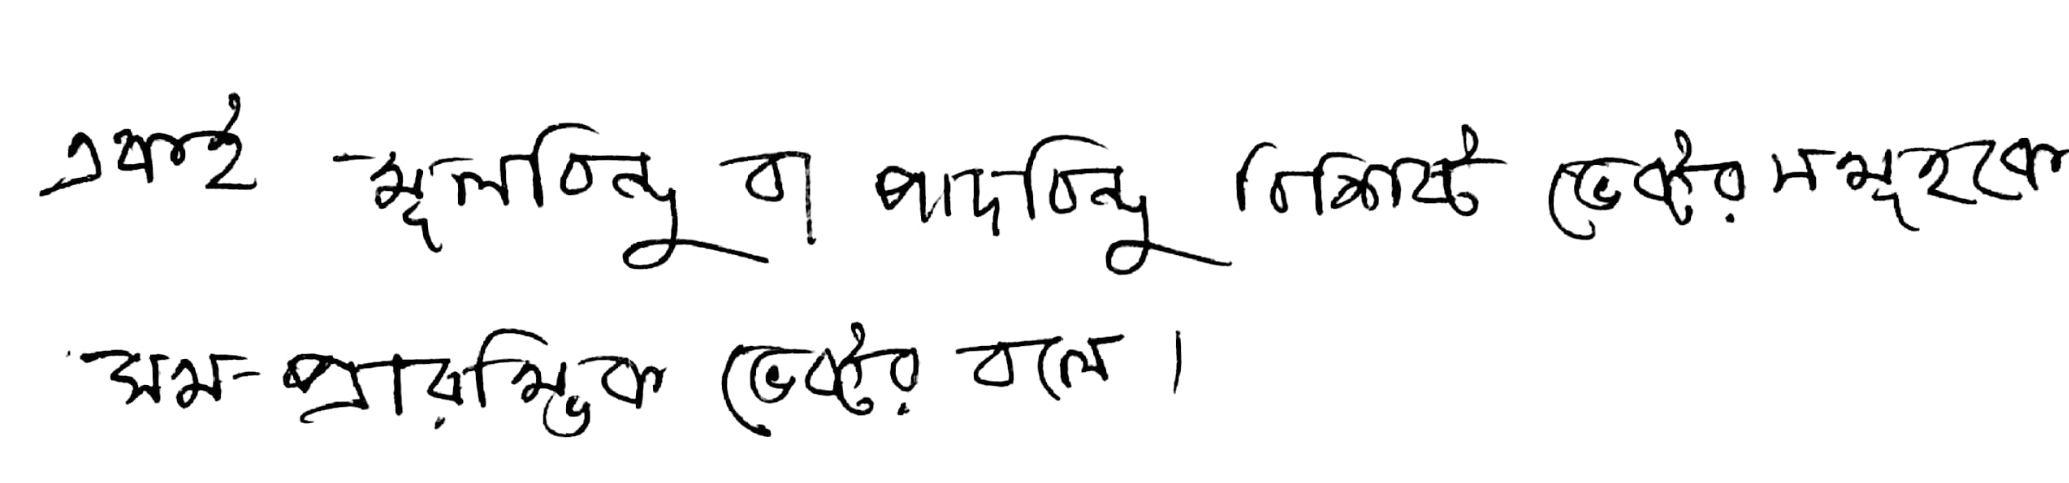 একই মূলবিন্দু বা পাদবিন্দু বিশিষ্ট ভেক্টর সমূহকে
সম-প্রারম্ভিক ভেক্টর বলে।